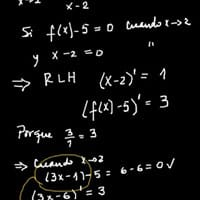 x→2
x-2
Si f(x)-5=0 cuando x→2
y x-2=0 "
⇒ RLH (x-2)' = 1
(f(x)-5)' = 3
Porque 3/1 = 3
⇒ Cuando x→2
(3x-1)-5 = 6-6=0✓
(3x-6)' = 3